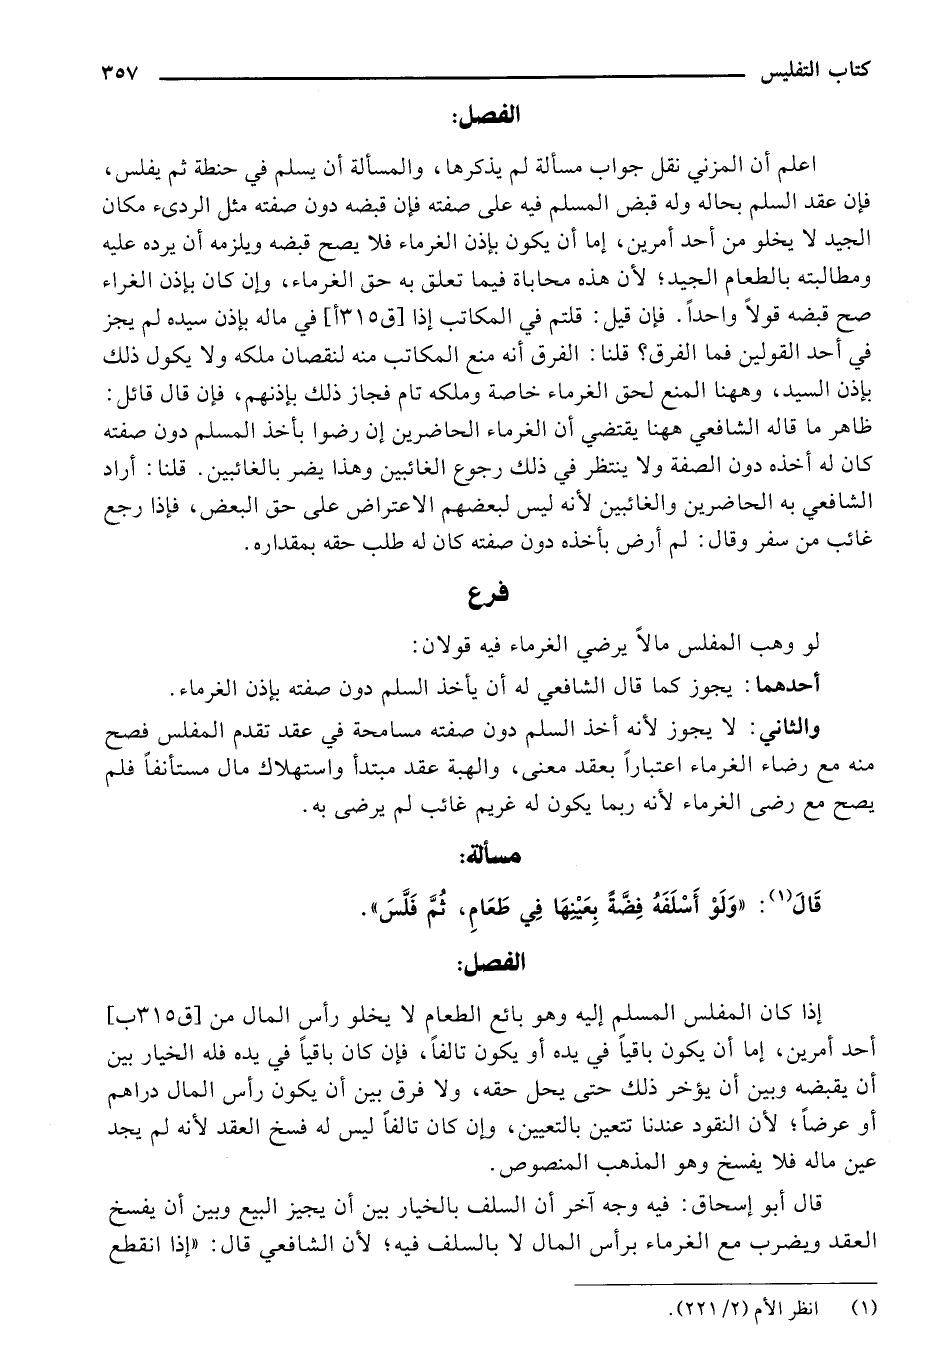 كتاب التفليس ٣٥٧
الفصل:
اعلم أن المزني نقل جواب مسألة لم يذكرها، والمسألة أن يسلم في حنطة ثم يفلس،
فإن عقد السلم بحاله وله قبض المسلم فيه على صفته فإن قبضه دون صفته مثل الرديء مكان
الجيد لا يخلو من أحد أمرين، إما أن يكون بإذن الغرماء فلا يصح قبضه ويلزمه أن يرده عليه
ومطالبته بالطعام الجيد؛ لأن هذه محاباة فيما تعلق به حق الغرماء، وإن كان بإذن الغراء
صح قبضه قولاً واحداً. فإن قيل: قلتم في المكاتب إذا [ق٣١٥أ] في ماله بإذن سيده لم يجز
في أحد القولين فما الفرق؟ قلنا: الفرق أنه منع المكاتب منه لنقصان ملكه ولا يكول ذلك
بإذن السيد، وههنا المنع لحق الغرماء خاصة وملكه تام فجاز ذلك بإذنهم، فإن قال قائل:
ظاهر ما قاله الشافعي ههنا يقتضي أن الغرماء الحاضرين إن رضوا بأخذ المسلم دون صفته
كان له أخذه دون الصفة ولا ينتظر في ذلك رجوع الغائبين وهذا يضر بالغائبين. قلنا: أراد
الشافعي به الحاضرين والغائبين لأنه ليس لبعضهم الاعتراض على حق البعض، فإذا رجع
غائب من سفر وقال: لم أرض بأخذه دون صفته كان له طلب حقه بمقداره.
فرع
لو وهب المفلس مالاً يرضي الغرماء فيه قولان:
أحدهما: يجوز كما قال الشافعي له أن يأخذ السلم دون صفته بإذن الغرماء.
والثاني: لا يجوز لأنه أخذ السلم دون صفته مسامحة في عقد تقدم المفلس فصح
منه مع رضاء الغرماء اعتباراً بعقد معنى، والهبة عقد مبتدأ واستهلاك مال مستأنفاً فلم
يصح مع رضى الغرماء لأنه ربما يكون له غريم غائب لم يرضى به.
مسألة:
قَالَ(١): «وَلَوْ أَسْلَفَهُ فِضَّةً بِعَيْنِهَا فِي طَعَامٍ، ثُمَّ فَلَّسَ».
الفصل:
إذا كان المفلس المسلم إليه وهو بائع الطعام لا يخلو رأس المال من [ق٣١٥ب]
أحد أمرين، إما أن يكون باقياً في يده أو يكون تالفاً، فإن كان باقياً في يده فله الخيار بين
أن يقبضه وبين أن يؤخر ذلك حتى يحل حقه، ولا فرق بين أن يكون رأس المال دراهم
أو عرضاً؛ لأن النقود عندنا تتعين بالتعيين، وإن كان تالفاً ليس له فسخ العقد لأنه لم يجد
عين ماله فلا يفسخ وهو المذهب المنصوص.
قال أبو إسحاق: فيه وجه آخر أن السلف بالخيار بين أن يجيز البيع وبين أن يفسخ
العقد ويضرب مع الغرماء برأس المال لا بالسلف فيه؛ لأن الشافعي قال: «إذا انقطع
(١) انظر الأم (٢/ ٢٢١).